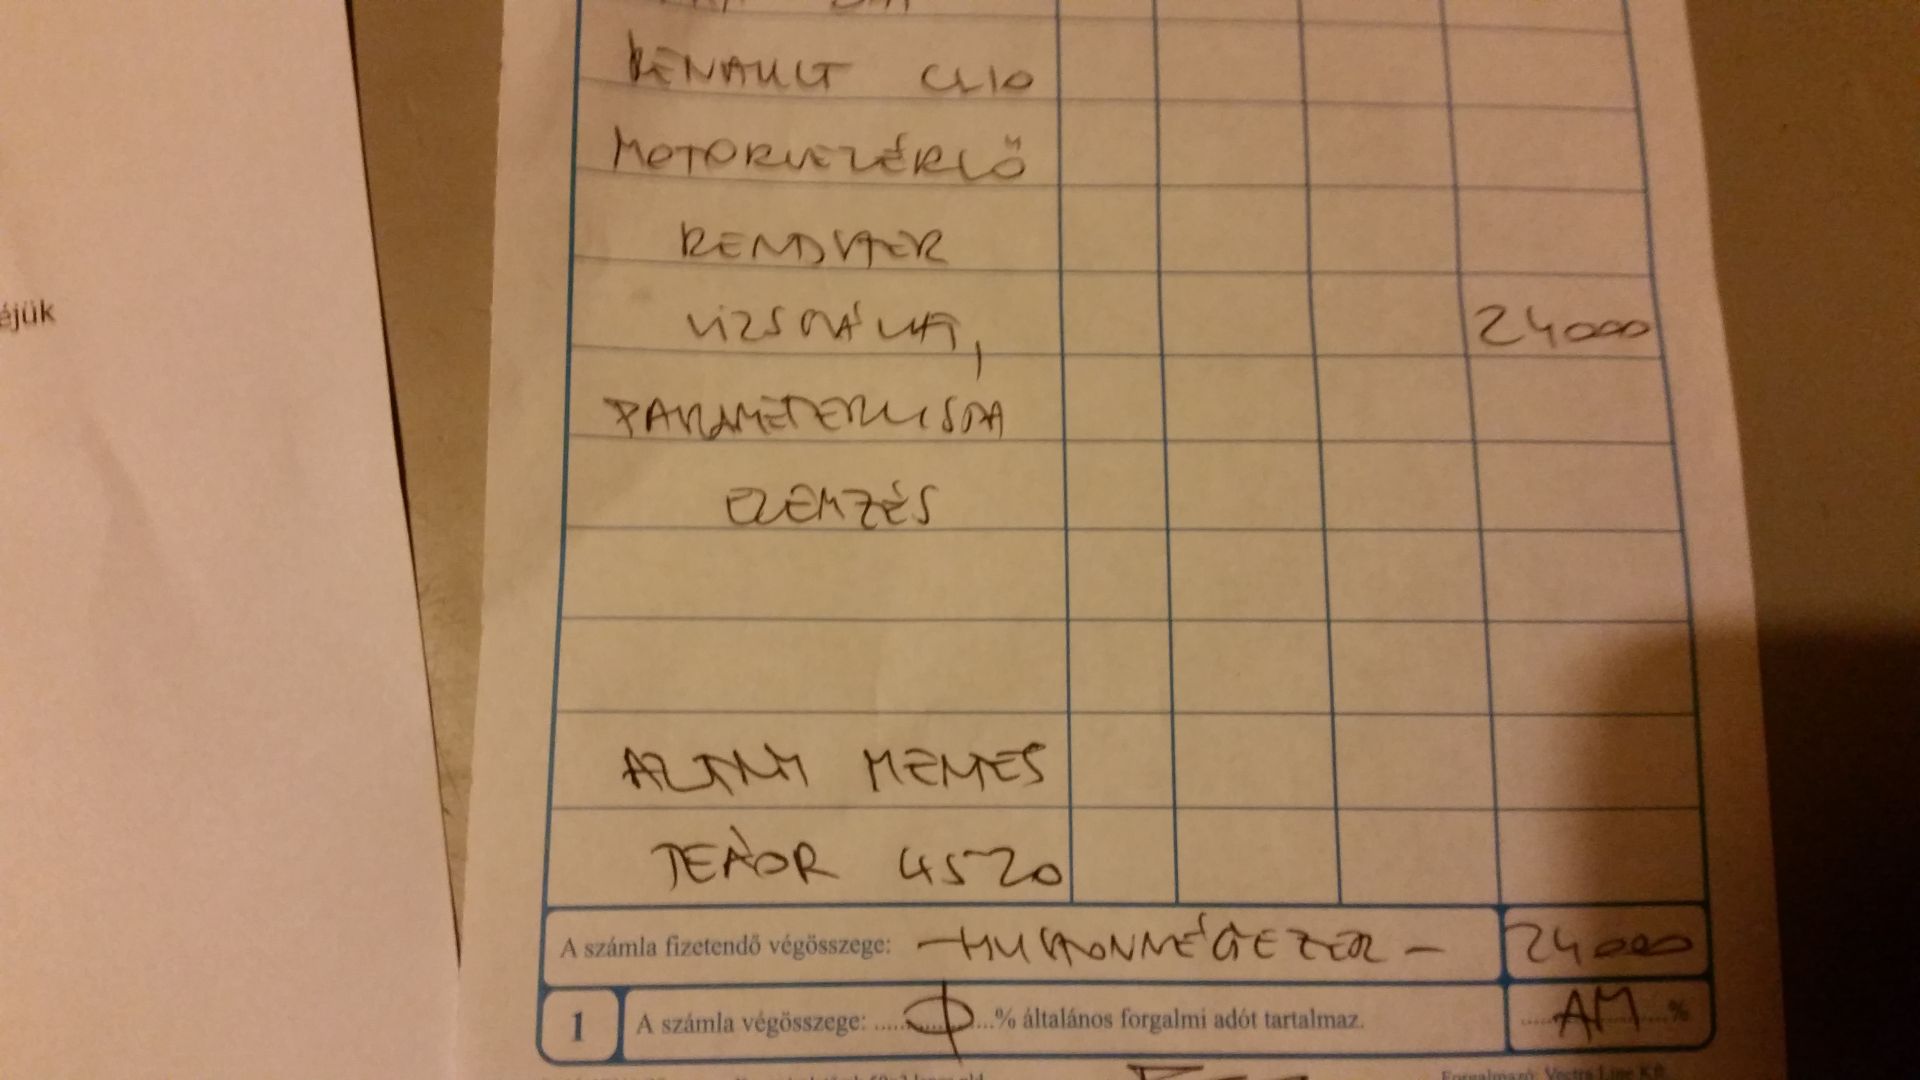 RENAULT CLIO
MOTORVEZÉRLŐ
RENDSZER
VIZSGÁLAT, 24000
éjük
PARAMÉTERLISTA
ELEMZÉS
ALANYI MENTES
TEÁOR 4520
A számla fizetendő végösszege: -HUSZONNÉGYEZER- 24000
1 A számla végösszege: .....0...% általános forgalmi adót tartalmaz. AM %
Forgalmazó: Vectra Line Kft.